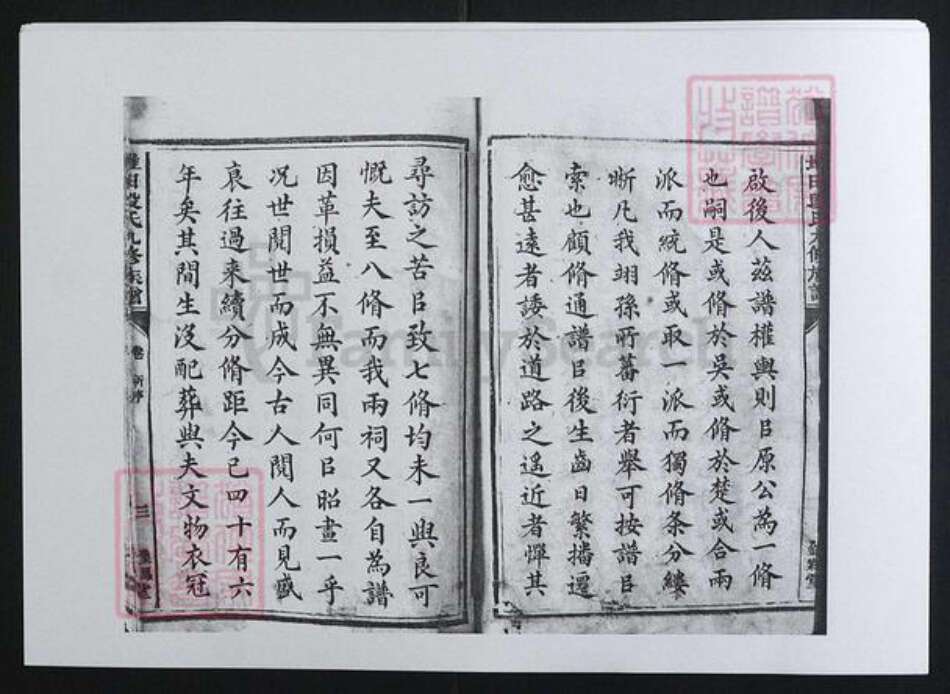 啟後人茲譜權輿則㠯原公為一脩
也嗣是或脩於吳或脩於楚或合兩
派而統脩或取一派而獨脩条分縷
晰凡我翊孫所蕃衍者舉可按譜㠯
索也顧脩通譜㠯後生齒日繁播遷
愈甚遠者諉於道路之遙近者憚其
尋訪之苦㠯致七脩均未一與良可
慨夫至八脩而我兩祠又各自為譜
因革損益不無異同何㠯昭畫一乎
况世閱世而成今古人閱人而見盛
衰往過来續分脩距今已四十有六
年矣其間生沒配葬與夫文物衣冠
段氏九修族譜
卷
新序
三
FamilySearch